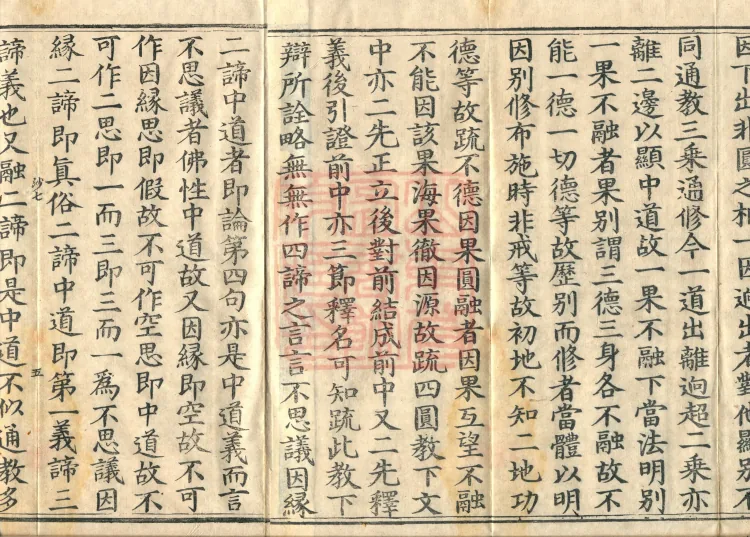 因下出非圓之相一因逈出者對修顯別不
同通教三乘通修今一道出離逈超二乘亦
離二邊以顯中道故一果不融下當法明別
一果不融者果別謂三德三身各不融故不
能一德一切德等故歷別而修者當體以明
因別修布施時非戒等故初地不知二地功
德等故疏不德因果圓融者因果互望不融
不能因該果海果徹因源故疏四圓教下文
中亦二先正立後對前結成前中又二先釋
義後引證前中亦三節釋名可知疏此教下
辯所詮略無無作四諦之言言不思議因緣
二諦中道者即論第四句亦是中道義而言
不思議者佛性中道故又因緣即空故不可
作因緣思即假故不可作空思即中道故不
可作二思即一而三即三而一爲不思議因
緣二諦即眞俗二諦中道即第一義諦三
沙七 五
諦義也又融二諦即是中道不似通教多